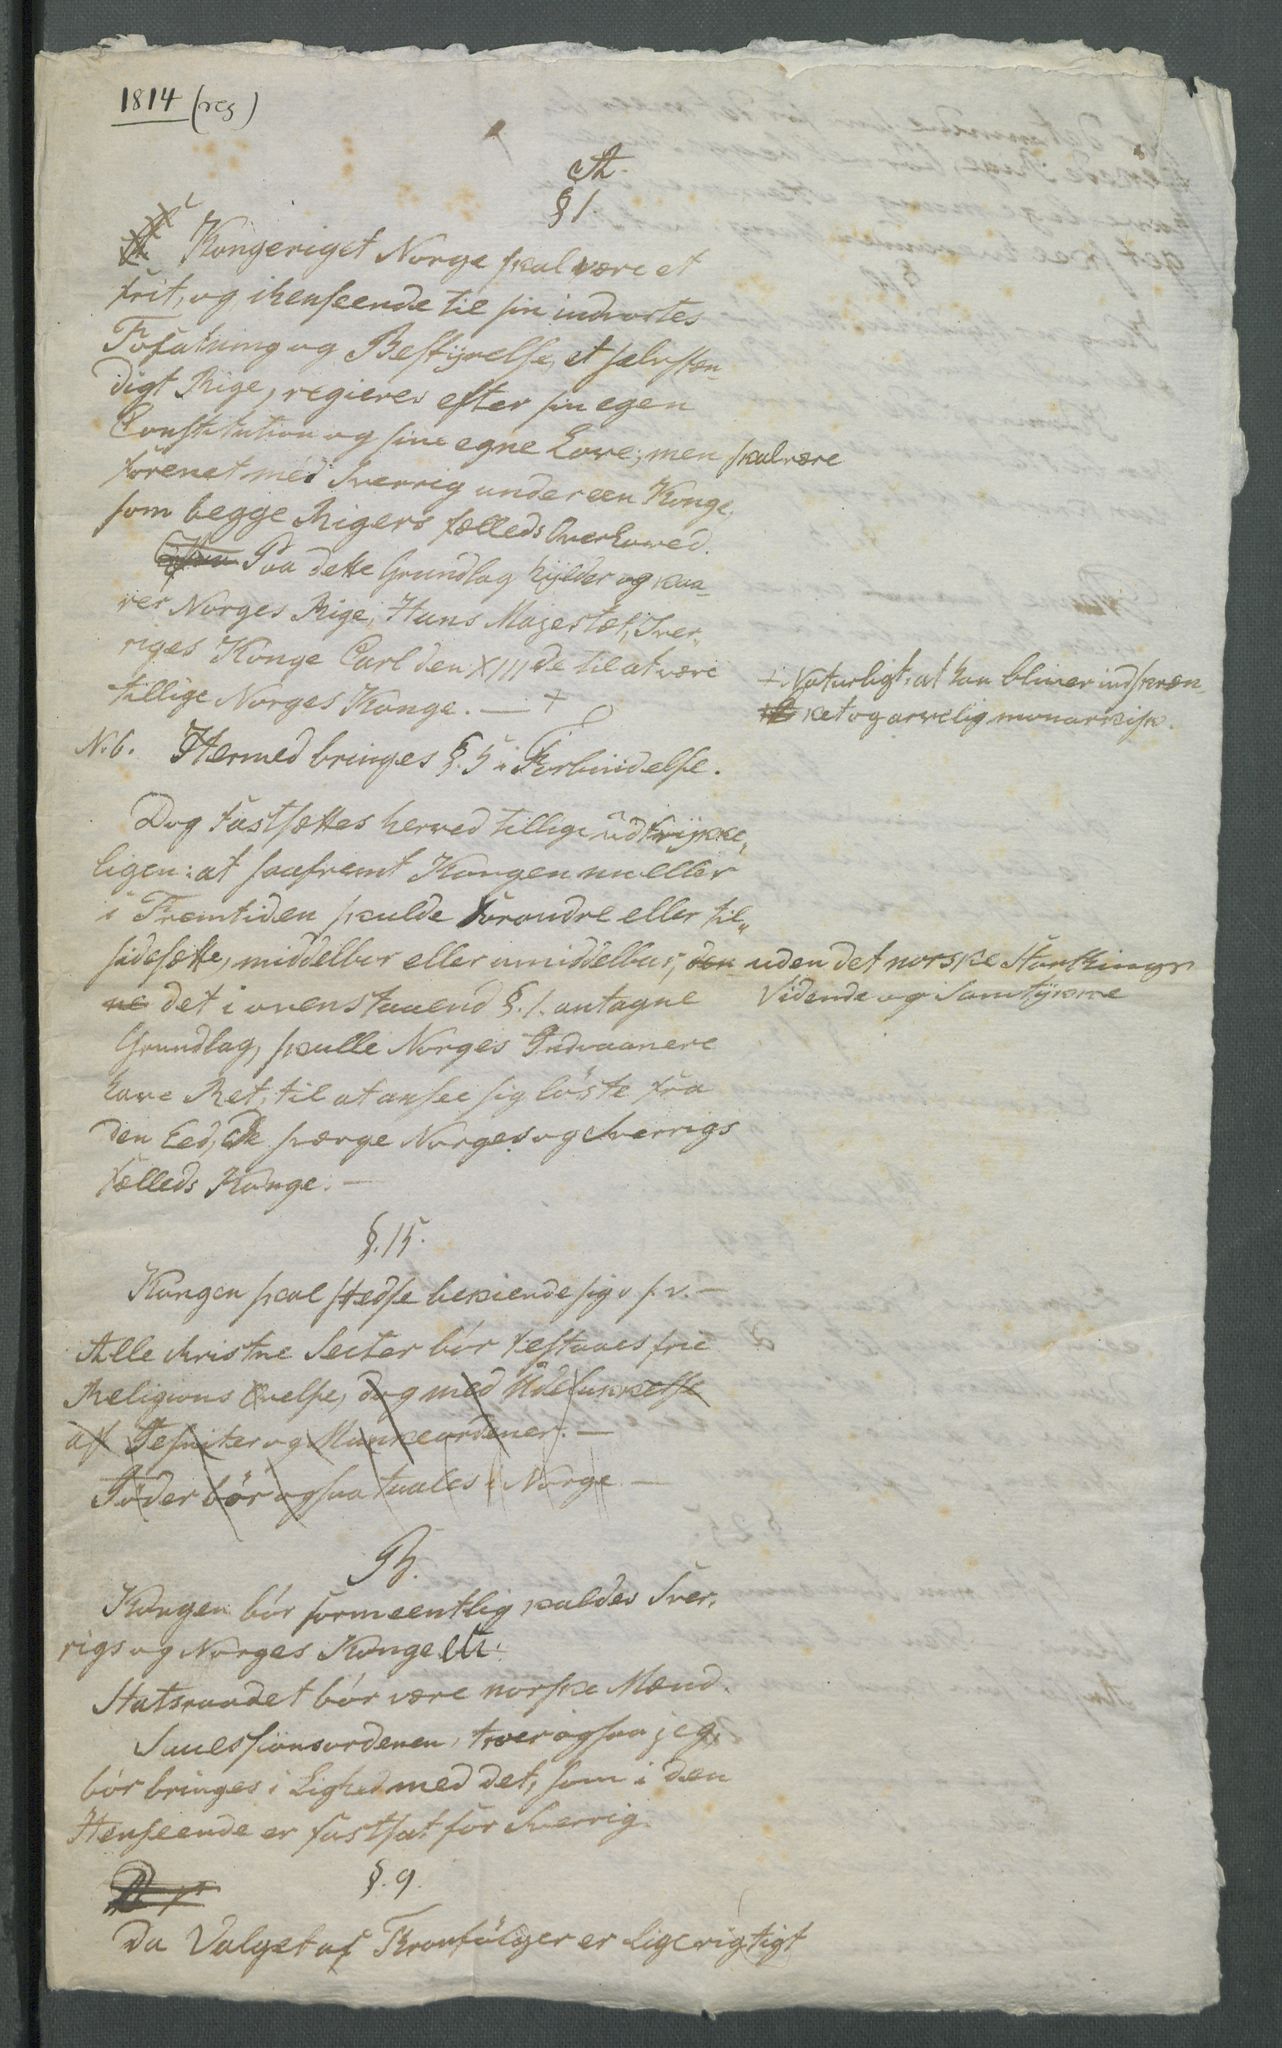 1814 (res)
A.
§ 1
Kongeriget Norge skal være et
frit, og ihenseende til sin indvortes
Forfatning og Bestÿrelse, et selvstæn-
digt Rige, regieres efter sin egen
Constitution og sine egne Love; men skal være
forenet med Sverrig under een Konge,
som begge Rigers fælleds Overhoved.
Paa dette Grundlag hÿlder og kaa-
rer Norges Rige, Hans Majestæt, Sver-
riges Konge Carl den XIIIde til at være
tillige Norges Konge. — +
+. Naturligt, at han bliver indskræn-
ket og arvelig monarkisk.
N.b. Hermed bringes §. 5 i Forbindelse.
Dog fastsættes herved tillige udtrÿkke-
ligen: at saafremt Kongen nu eller
i Fremtiden skulde forandre eller til-
sidesætte, middelbar eller umiddelbar, den uden det norske Storthings
ne det i ovenstaaend §. 1. antagne Vidende og Samtÿkke
Grundlag, skulle Norges Indvaanere
have Ret, til at ansee sig löste fra
den Eed, de sværge Norges og Sverrigs
fælleds Konge. —
§. 15.
Kongen skal stedse bekiende sig o s. v. —
Alle christne Secter bör tilstaaes frie
Religions Övelse, dog med Udelukkelse
af Jesuiter og Munkeordener. —
Jöder bör ogsaa taales i Norge —
B.
Kongen bör formeentlig kaldes Sver-
rigs og Norges Konge etc.
Statsraadet bör være norske Mænd.
Successionsordenen, troer ogsaa jeg,
bör bringes i Lighed med det, som i den
Henseende er fastsat for Sverrig.
§. 9.
Da Valget af Tronfölger er ligerigtigt